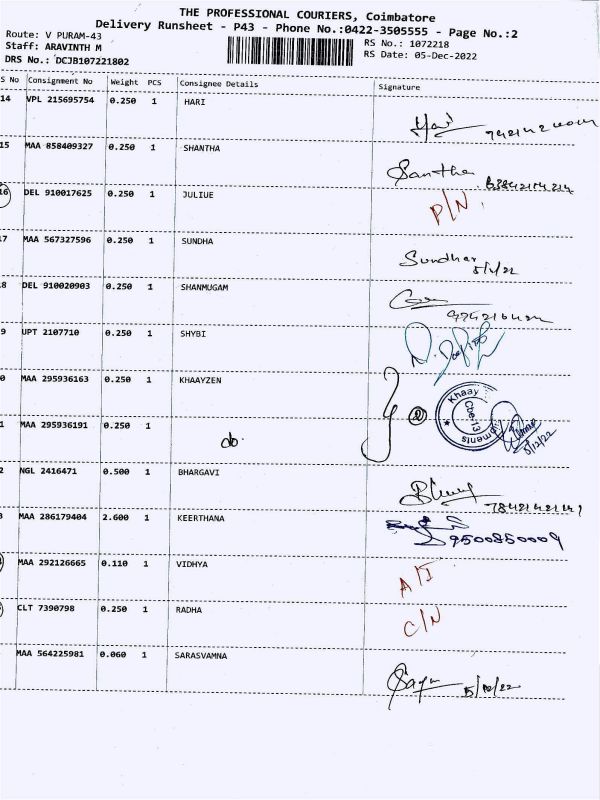 THE PROFESSIONAL COURIERS, Coimbatore
Delivery Runsheet - P43 - Phone No.:0422-3505555 - Page No.:2
Route: V PURAM-43
Staff: ARAVINTH M
RS No.: 1072218
DRS No.: DCJB107221802
RS Date: 05-Dec-2022
S No Consignment No Weight PCS Consignee Details Signature
14 VPL 215695754 0.250 1 HARI
Hari
15 MAA 858409327 0.250 1 SHANTHA
Santha
16 DEL 910017625 0.250 1 JULIUE
P/N
17 MAA 567327596 0.250 1 SUNDHA
Sundhar
8 DEL 910020903 0.250 1 SHANMUGAM
9 UPT 2107710 0.250 1 SHYBI
0 MAA 295936163 0.250 1 KHAAYZEN
Khaay
Cbe-13
2
1 MAA 295936191 0.250 1
do.
5/12/22
2 NGL 2416471 0.500 1 BHARGAVI
3 MAA 286179404 2.600 1 KEERTHANA
9500850009
MAA 292126665 0.110 1 VIDHYA
A/I
CLT 7390798 0.250 1 RADHA
C/N
MAA 564225981 0.060 1 SARASVAMNA